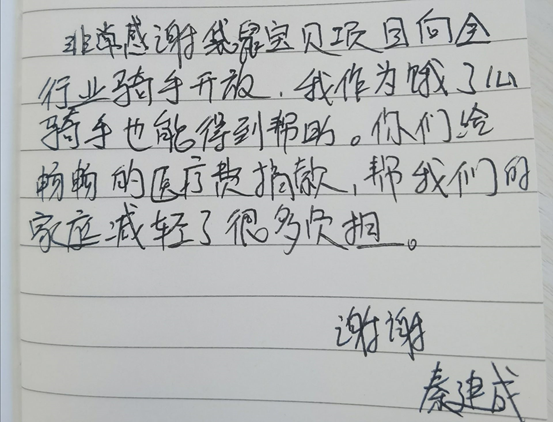 非常感谢袋鼠宝贝项目向全
行业骑手开放，我作为饿了么
骑手也能得到帮助。你们给
畅畅的医疗费捐款，帮我们的
家庭减轻了很多负担。
谢谢
秦建成